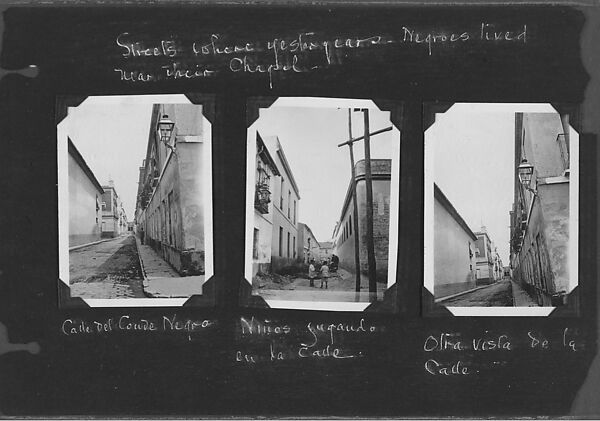 Streets where yesteryears Negroes lived
near their Chapel.
Calle del Conde Negro
Niños jugando
en la calle.
Otra vista de la
Calle.